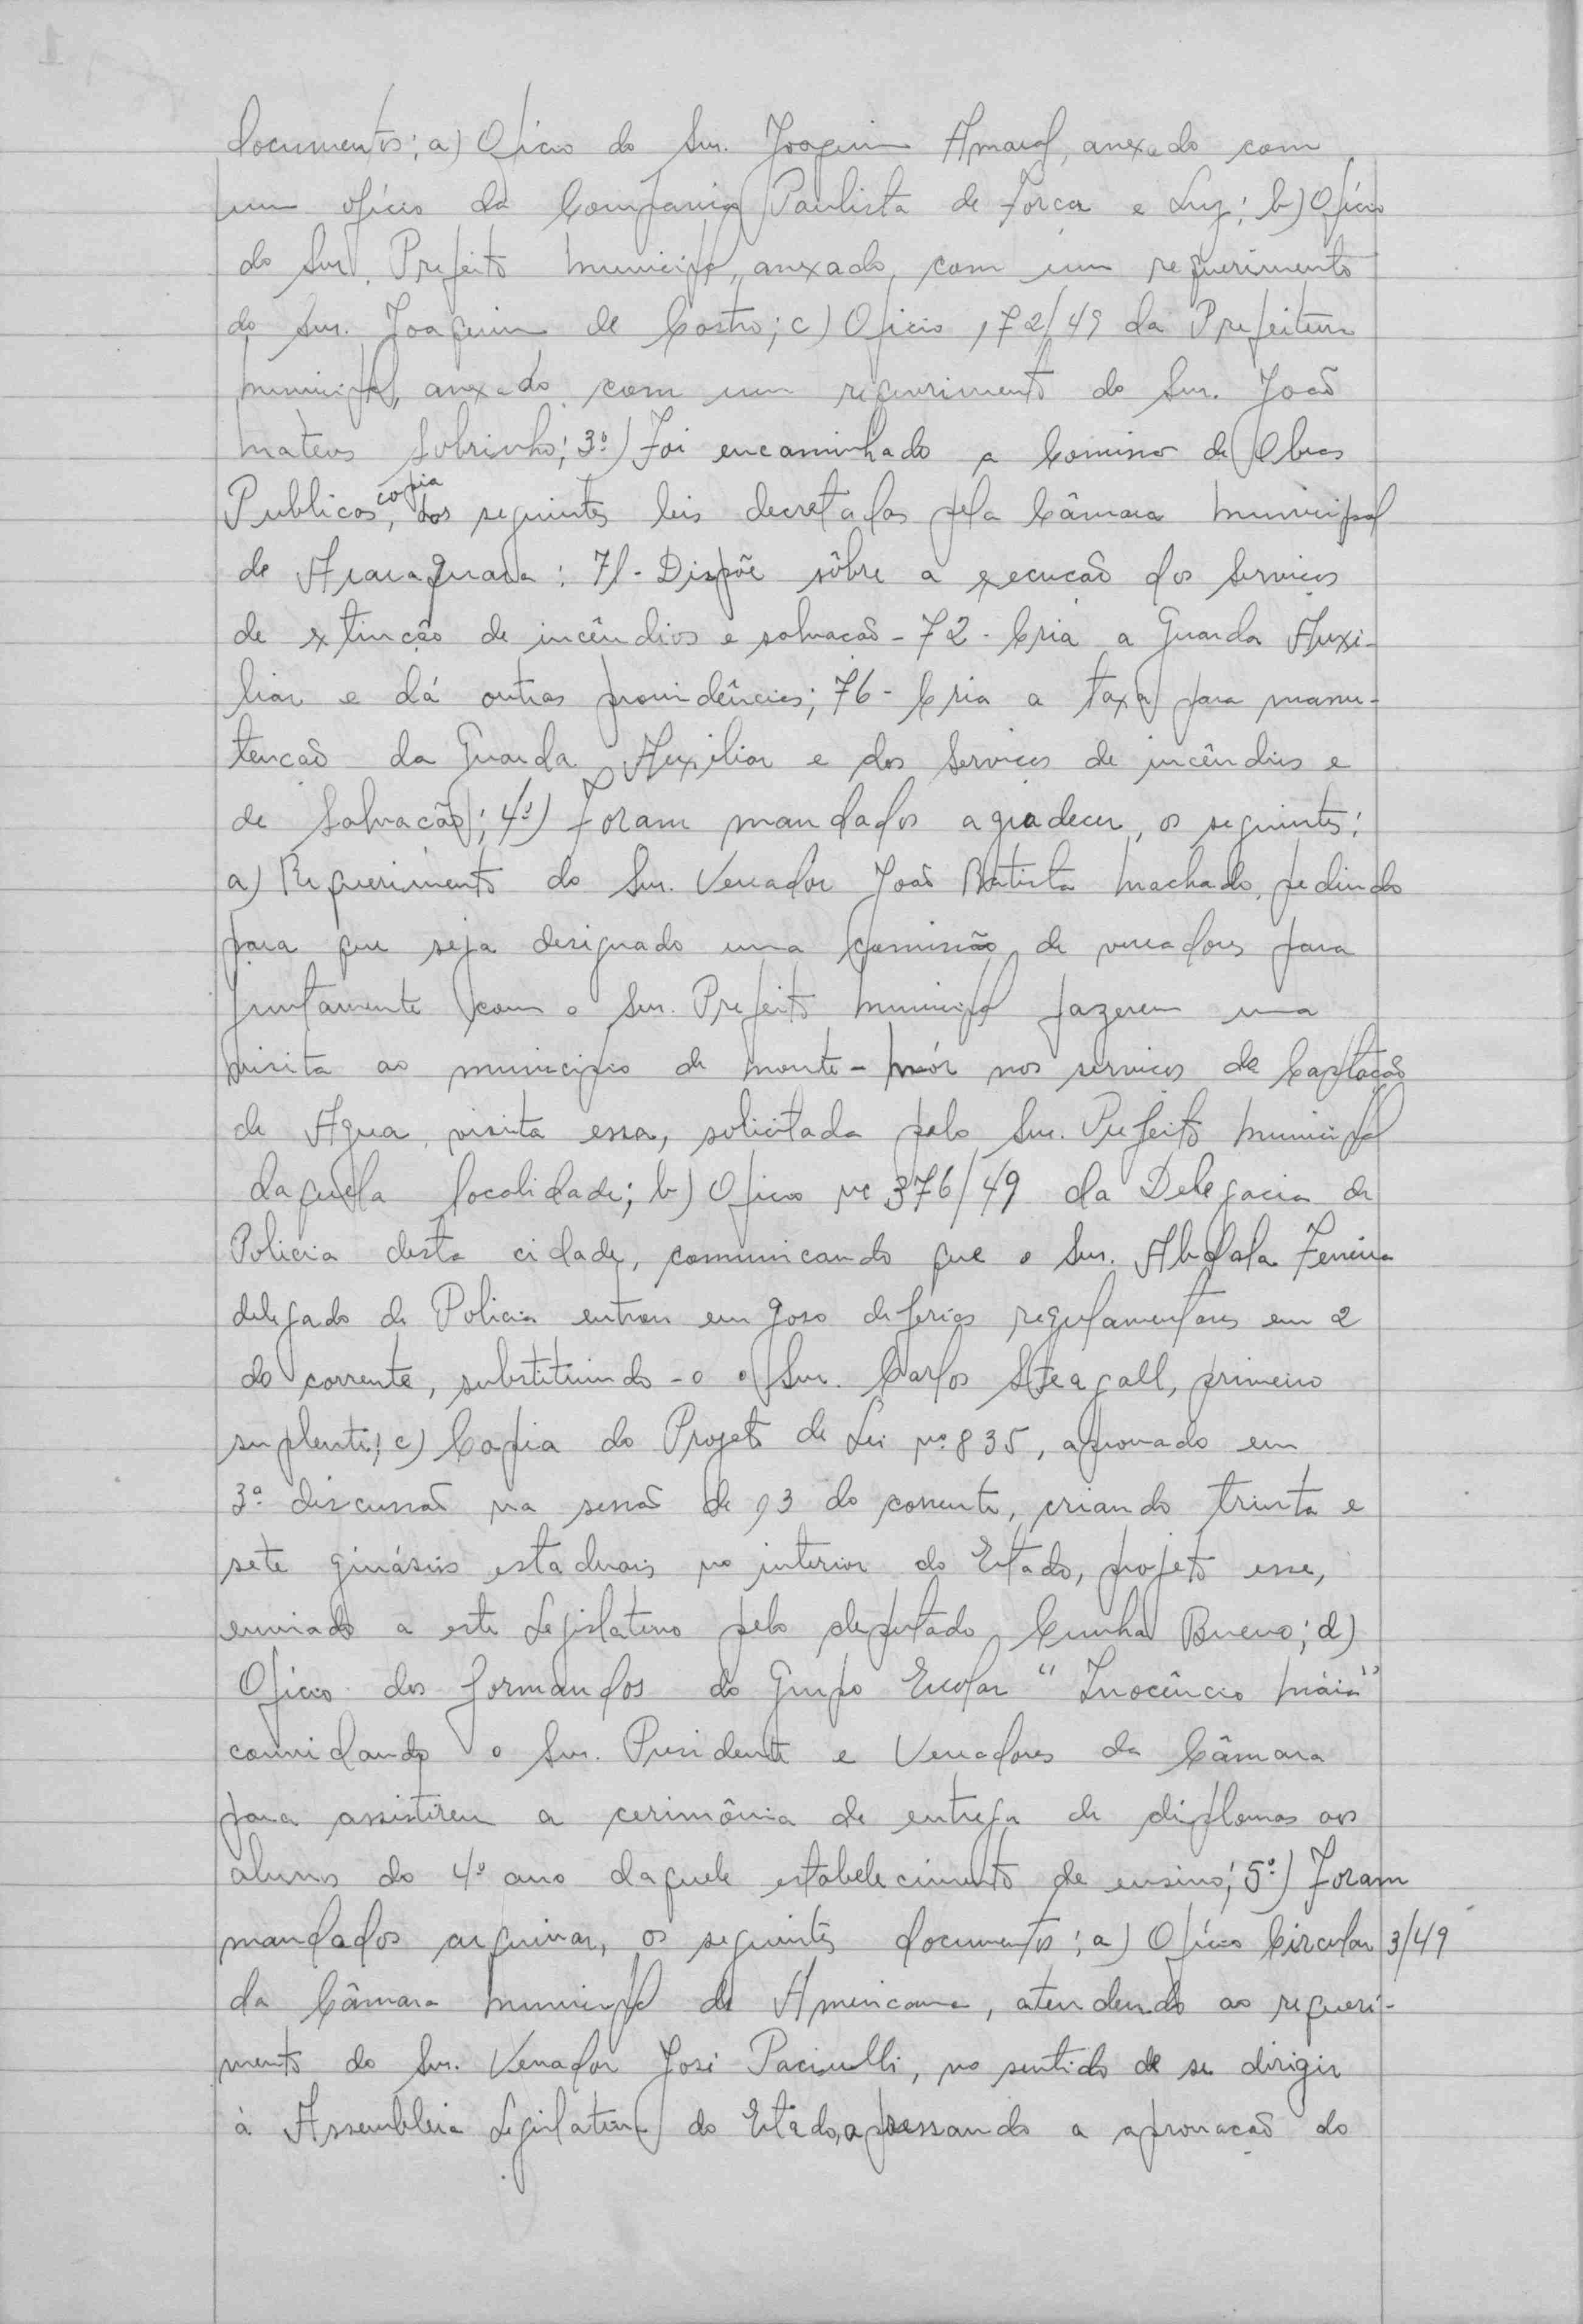 documentos; a) Oficio do Snr. Joaquim Amaral, anexado com
um ofício da Companhia Paulista de Força e Luz; b) Ofício
do Snr. Prefeito Municipal, anexado, com um requerimento
do Snr. Joaquim de Castro; c) Oficio 172/49 da Prefeitura
Municipal, anexado com um requerimento do Snr. João
Mateus Sobrinho; 3º) Foi encaminhado a Comissão de Obras
Publicas, copia das seguintes leis decretadas pela Câmara Municipal
de Araraquara: 71 - Dispõe sôbre a execução dos Serviços
de extinção de incêndios e salvação - 72 - Cria a Guarda Auxi-
liar e dá outras providências; 76 - Cria a taxa para manu-
tenção da Guarda Auxiliar e dos Serviços de incêndios e
de Salvação; 4º) Foram mandados agradecer, os seguintes:
a) Requerimento do Snr. Vereador João Batista Machado, pedindo
para que seja designado uma comissão de vereadores para
juntamente com o Snr. Prefeito Municipal fazerem uma
visita ao municipio de Monte-Mór nos serviços de Captação
de Agua, visita essa, solicitada pelo Snr. Prefeito Municipal
daquela localidade; b) Oficio nº 376/49 da Delegacia de
Policia desta cidade, comunicando que o Snr. Abdala Ferreira
delegado de Policia entrou em goso de ferias regulamentares em 2
do corrente, substituindo-o o Snr. Carlos Steagall, primeiro
suplente; c) Copia do Projeto de Lei nº 835, aprovado em
3ª discussão na sessão de 23 do corrente, criando trinta e
sete ginásios estaduais no interior do Estado, projeto esse,
enviado a este Legislativo pelo deputado Cunha Bueno; d)
Ofício dos formandos do Grupo Escolar "Inocêncio Máia"
convidando o Snr. Presidente e Vereadores da Câmara
para assistirem a cerimônia de entrega de diplomas aos
alunos do 4º ano daquele estabelecimento de ensino; 5º) Foram
mandados arquivar, os seguintes documentos: a) Ofício Circular 3/49
da Câmara Municipal de Americana, atendendo ao requeri-
mento do Snr. Vereador José Paciulli, no sentido de se dirigir
à Assembleia Legislativa do Estado, apressando a aprovação do